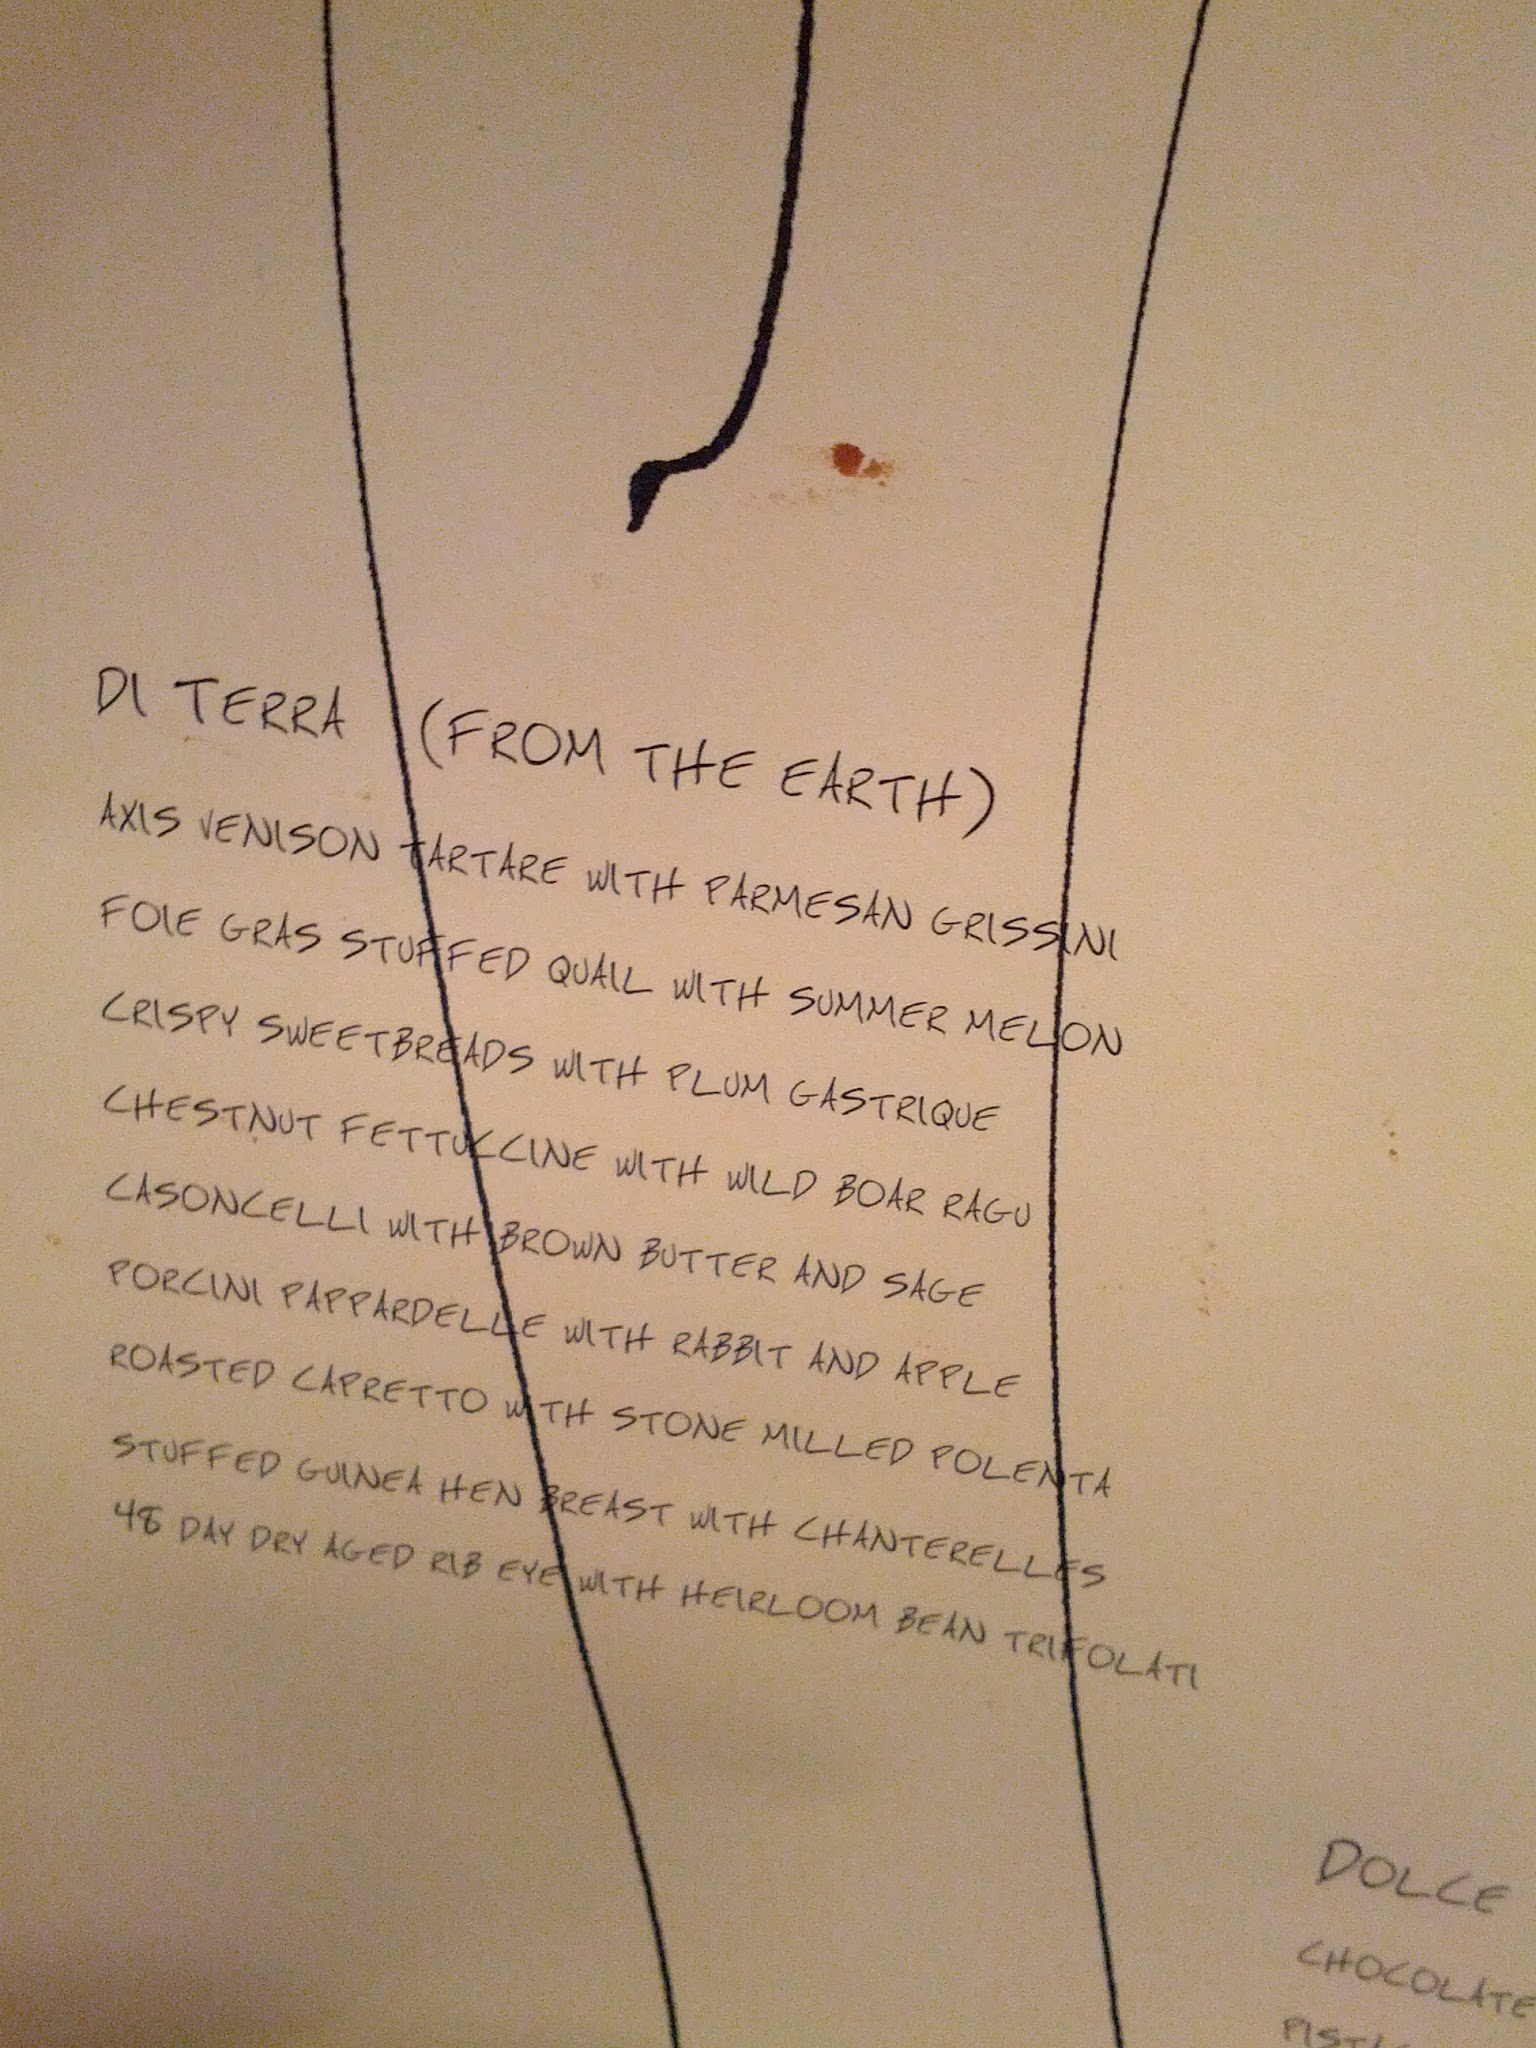 DI TERRA (FROM THE EARTH)
AXIS VENISON TARTARE WITH PARMESAN GRISSINI
FOIE GRAS STUFFED QUAIL WITH SUMMER MELON
CRISPY SWEETBREADS WITH PLUM GASTRIQUE
CHESTNUT FETTUCCINE WITH WILD BOAR RAGU
CASONCELLI WITH BROWN BUTTER AND SAGE
PORCINI PAPPARDELLE WITH RABBIT AND APPLE
ROASTED CAPRETTO WITH STONE MILLED POLENTA
STUFFED GUINEA HEN BREAST WITH CHANTERELLES
48 DAY DRY AGED RIB EYE WITH HEIRLOOM BEAN TRIFOLATI
DOLCE
CHOCOLATE